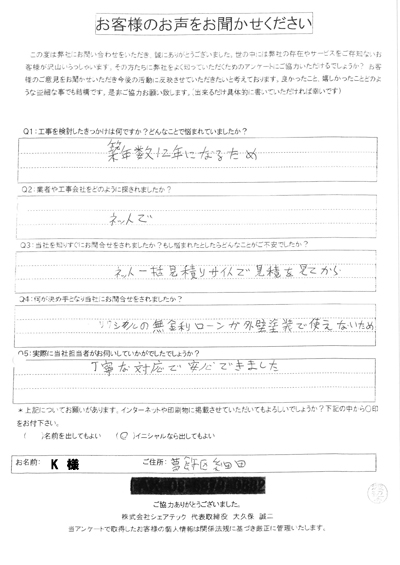 お客様のお声をお聞かせください
この度は弊社にお問い合わせをいただき、誠にありがとうございました。世の中には弊社の存在やサービスをご存知ないお
客様が沢山いらっしゃいます。その方たちに弊社をよく知っていただくためのアンケートにご協力いただけるでしょうか？お客
様のご意見をお聞かせいただき今後の活動に反映させていただきたいと考えております。良かったこと、嬉しかったことどのよ
うな些細な事でも結構です。是非ご協力お願い致します。（出来るだけ具体的に書いていただければ幸いです）
Q1：工事を検討したきっかけは何ですか？どんなことで悩まれていましたか？
築年数12年になるため
Q2：業者や工事会社をどのように探されましたか？
ネットで
Q3：当社を知りすぐにお問合せをされましたか？もし悩まれたとしたらどんなことがご不安でしたか？
ネット一括見積りサイトで見積を見てから
Q4：何が決め手となり当社にお問合せをされましたか？
の無金利ローンが外壁塗装で使えないため
Q5：実際に当社担当者がお伺いしていかがでしたでしょうか？
丁寧な対応で安心できました
＊上記についてお願いがあります、インターネットや印刷物に掲載させていただいてもよろしいでしょうか？下記の中から○印
をお付下さい。
（ ）名前を出してもよい （○）イニシャルなら出してもよい
お名前： K 様 ご住所： 葛飾区細田
ご協力ありがとうございました。
株式会社シェアテック 代表取締役 大久保 誠二
当アンケートで取得したお客様の個人情報は関係法規に基づき厳正に管理いたします。